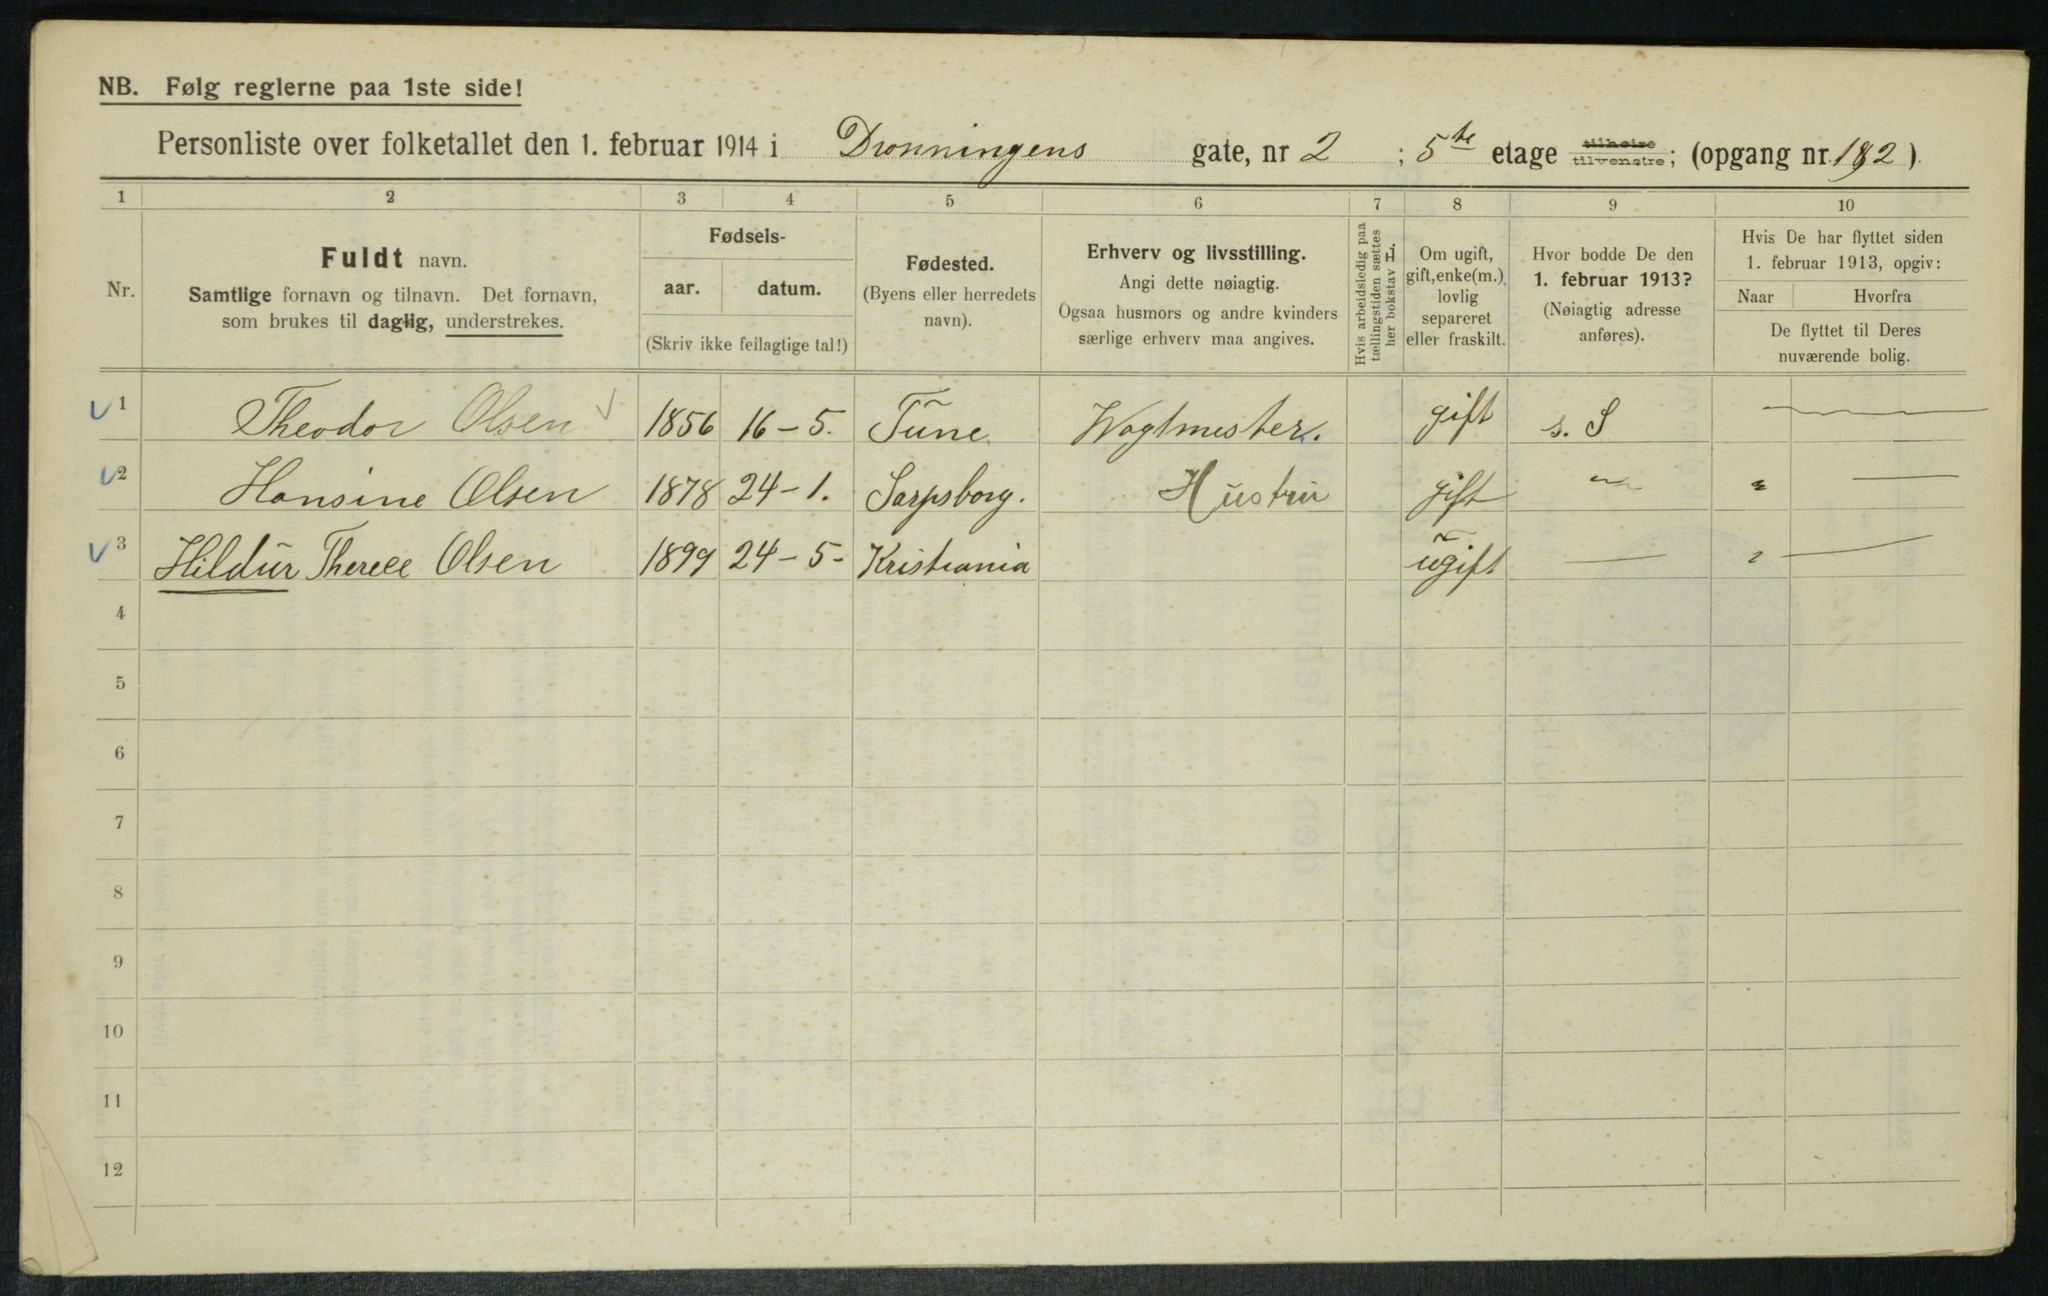 NB. Følg reglerne paa 1ste side!
Personliste over folketallet den 1. februar 1914 i Dronningens gate, nr 2 ; 5te etage tilhøire tilvenstre; (opgang nr. 1 2).
1 2 3 4 5 6 7 8 9 10
Nr.
Fuldt navn.
Samtlige fornavn og tilnavn. Det fornavn,
som brukes til daglig, understrekes.
Fødsels-
aar. datum.
(Skriv ikke feilagtige tal!)
Fødested.
(Byens eller herredets
navn).
Erhverv og livsstilling.
Angi dette nøiagtig.
Ogsaa husmors og andre kvinders
særlige erhverv maa angives.
Hvis arbeidsledig paa
tællingstiden sættes
her bokstav L.
Om ugift,
gift, enke(m.),
lovlig
separeret
eller fraskilt.
Hvor bodde De den
1. februar 1913?
(Nøiagtig adresse
anføres).
Hvis De har flyttet siden
1. februar 1913, opgiv:
Naar Hvorfra
De flyttet til Deres
nuværende bolig.
1 Theodor Olsen 1856 16-5. Tune Vagtmester. gift s. S —
2 Hansine Olsen 1878 24-1. Sarpsborg. Hustru gift " " —
3 Hildur Therese Olsen 1899 24-5- Kristiania ugift — " —
4
5
6
7
8
9
10
11
12